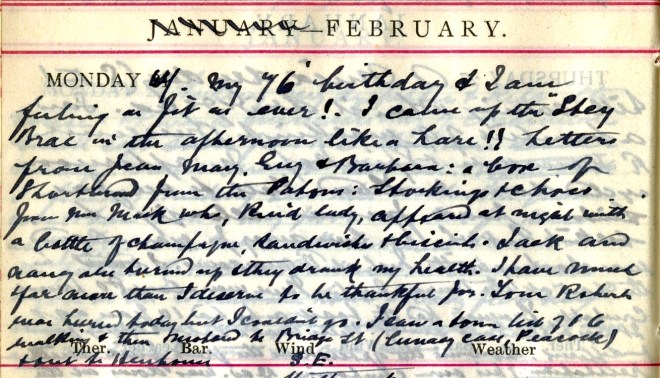 JANUARY—FEBRUARY.
MONDAY 4. My 76 birthday & I am
feeling as fit as ever! I came up the Stey
Brae in the afternoon like a hare!! Letters
from Jean, May, Guy & Barbara: a box of
Shortbread from the Patons: Stockings &
from Mrs Mack who, kind lady, appeared at night with
a bottle of champagne, sandwiches & biscuits. Jack and
Nancy also turned up & they drank my health. I have much
far more than I deserve to be thankful for. Tom Roberts
was buried today but I couldn't go. I saw a town list of 66
walking & then motored to Bridge St (Lunacy case, Peacock)
Ther. Bar. Wind Weather
& sent to S.E.